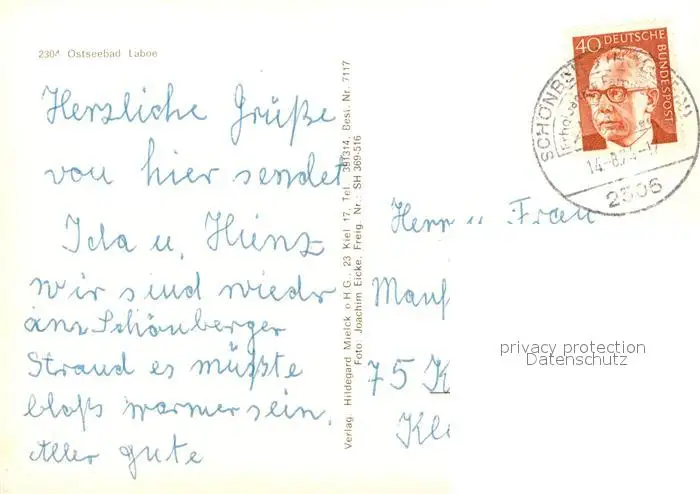 2304 Ostseebad Laboe
Herzliche Grüße
von hier sendet
Ida u. Heinz
wir sind wieder
ans Schönberger
Strand es müßte
bloß warmer sein.
Aller gute
Verlag Hildegard Mielck oHG., 23 Kiel 17, Tel. 391314, Best. Nr. 7117
Foto: Joachim Eicke. Freig. Nr.: SH 369-516
40 DEUTSCHE
BUNDESPOST
SCHÖNBERG
14.-8.74-17
2306
Herr u Frau
Manf
75 K
Kle
privacy protection
Datenschutz